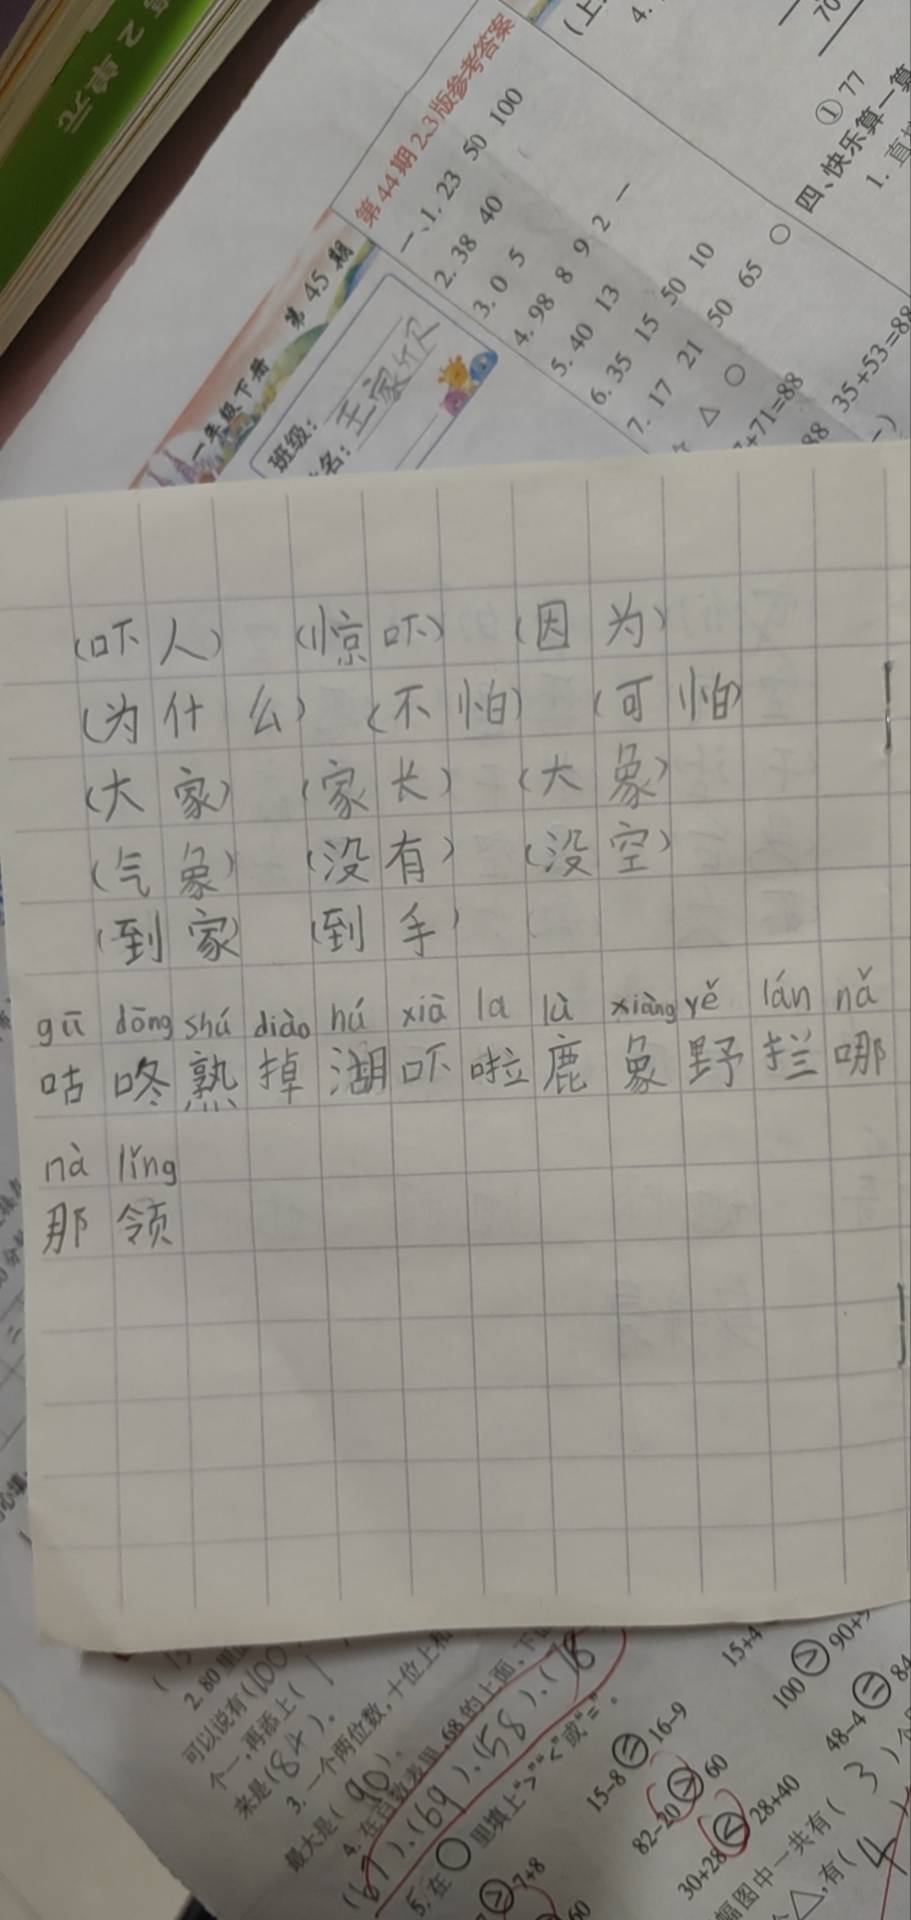 第2单元
第44期2、3版参考答案
一、1. 23 50 100
2. 38 40
3. 0 5
4. 98 8 9 2 一
5. 40 13
6. 35 15 50 10
7. 17 21 50 65 ○
△ ○
+71=88
88 35+53=88
① 77
四、快乐算一算
1. 直
一年级下册 第45期
班级：
名：王家
(吓人) (惊吓) (因为)
(为什么) (不怕) (可怕)
(大家) (家长) (大象)
(气象) (没有) (没空)
(到家) (到手)
gū dōng shú diào hú xiā la lù xiàng yě lán nǎ
咕咚熟掉湖吓啦鹿象野拦哪
nà lǐng
那领
2. 80里
可以说有(100
个一，再添上(
来是(84)。
3. 一个两位数，十位上和
最大是(90)。
4. 在百数表里，68的上面、下
(67)、(69)、(58)、(78
5. 在○里填上“>”“<”或“=”。
7+8
60
15-8=16-9
82-20>60
30+28<28+40
15+4
100>90+
48-4=84
幅图中一共有(3)个
个△，有(4